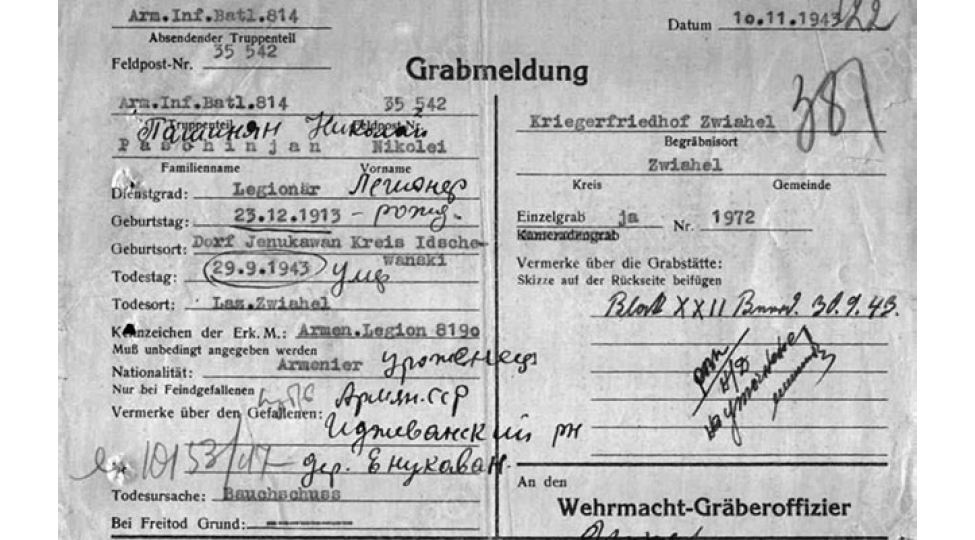 Arm.Inf.Batl.814
Absendender Truppenteil
Feldpost-Nr. 35 542
Datum 10.11.1943
22
Grabmeldung
387
Arm.Inf.Batl.814 35 542
Truppenteil Feldpost-Nr.
Пашинян Николай
Paschinjan Nikolei
Familienname Vorname
Dienstgrad: Legionär Легионер
Geburtstag: 23.12.1913 – рожд.
Geburtsort: Dorf Jenukawan Kreis Idsche-
wanski
Todestag: 29.9.1943 умер
Todesort: Laz.Zwiahel
Kennzeichen der Erk. M.: Armen.Legion 8190
Muß unbedingt angegeben werden
Nationalität: Armenier уроженец
Nur bei Feindgefallenen
Vermerke über den Gefallenen: Армян.ССР
Иджеванский рн
10153/17 – дер. Енукаван.
Todesursache: Bauchschuss
Bei Freitod Grund:
Kriegerfriedhof Zwiahel
Begräbnisort
Zwiahel
Kreis Gemeinde
Einzelgrab ja Nr. 1972
Kameradengrab
Vermerke über die Grabstätte:
Skizze auf der Rückseite beifügen
Block XXII 30.9.43.
An den
Wehrmacht-Gräberoffizier